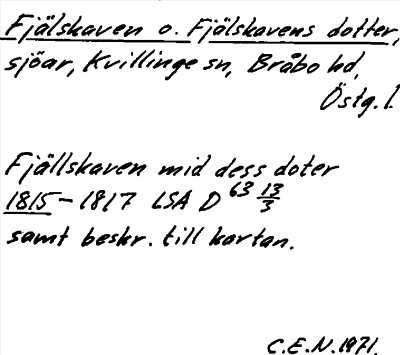 Fjälskaven o. Fjälskavens dotter,
sjöar, Kvillinge sn, Bråbo hd,
Östg. l.
Fjällskaven mid dess doter
1815 – 1817 LSA D 63 13/3
samt beskr. till kartan.
C.E.N. 1971.